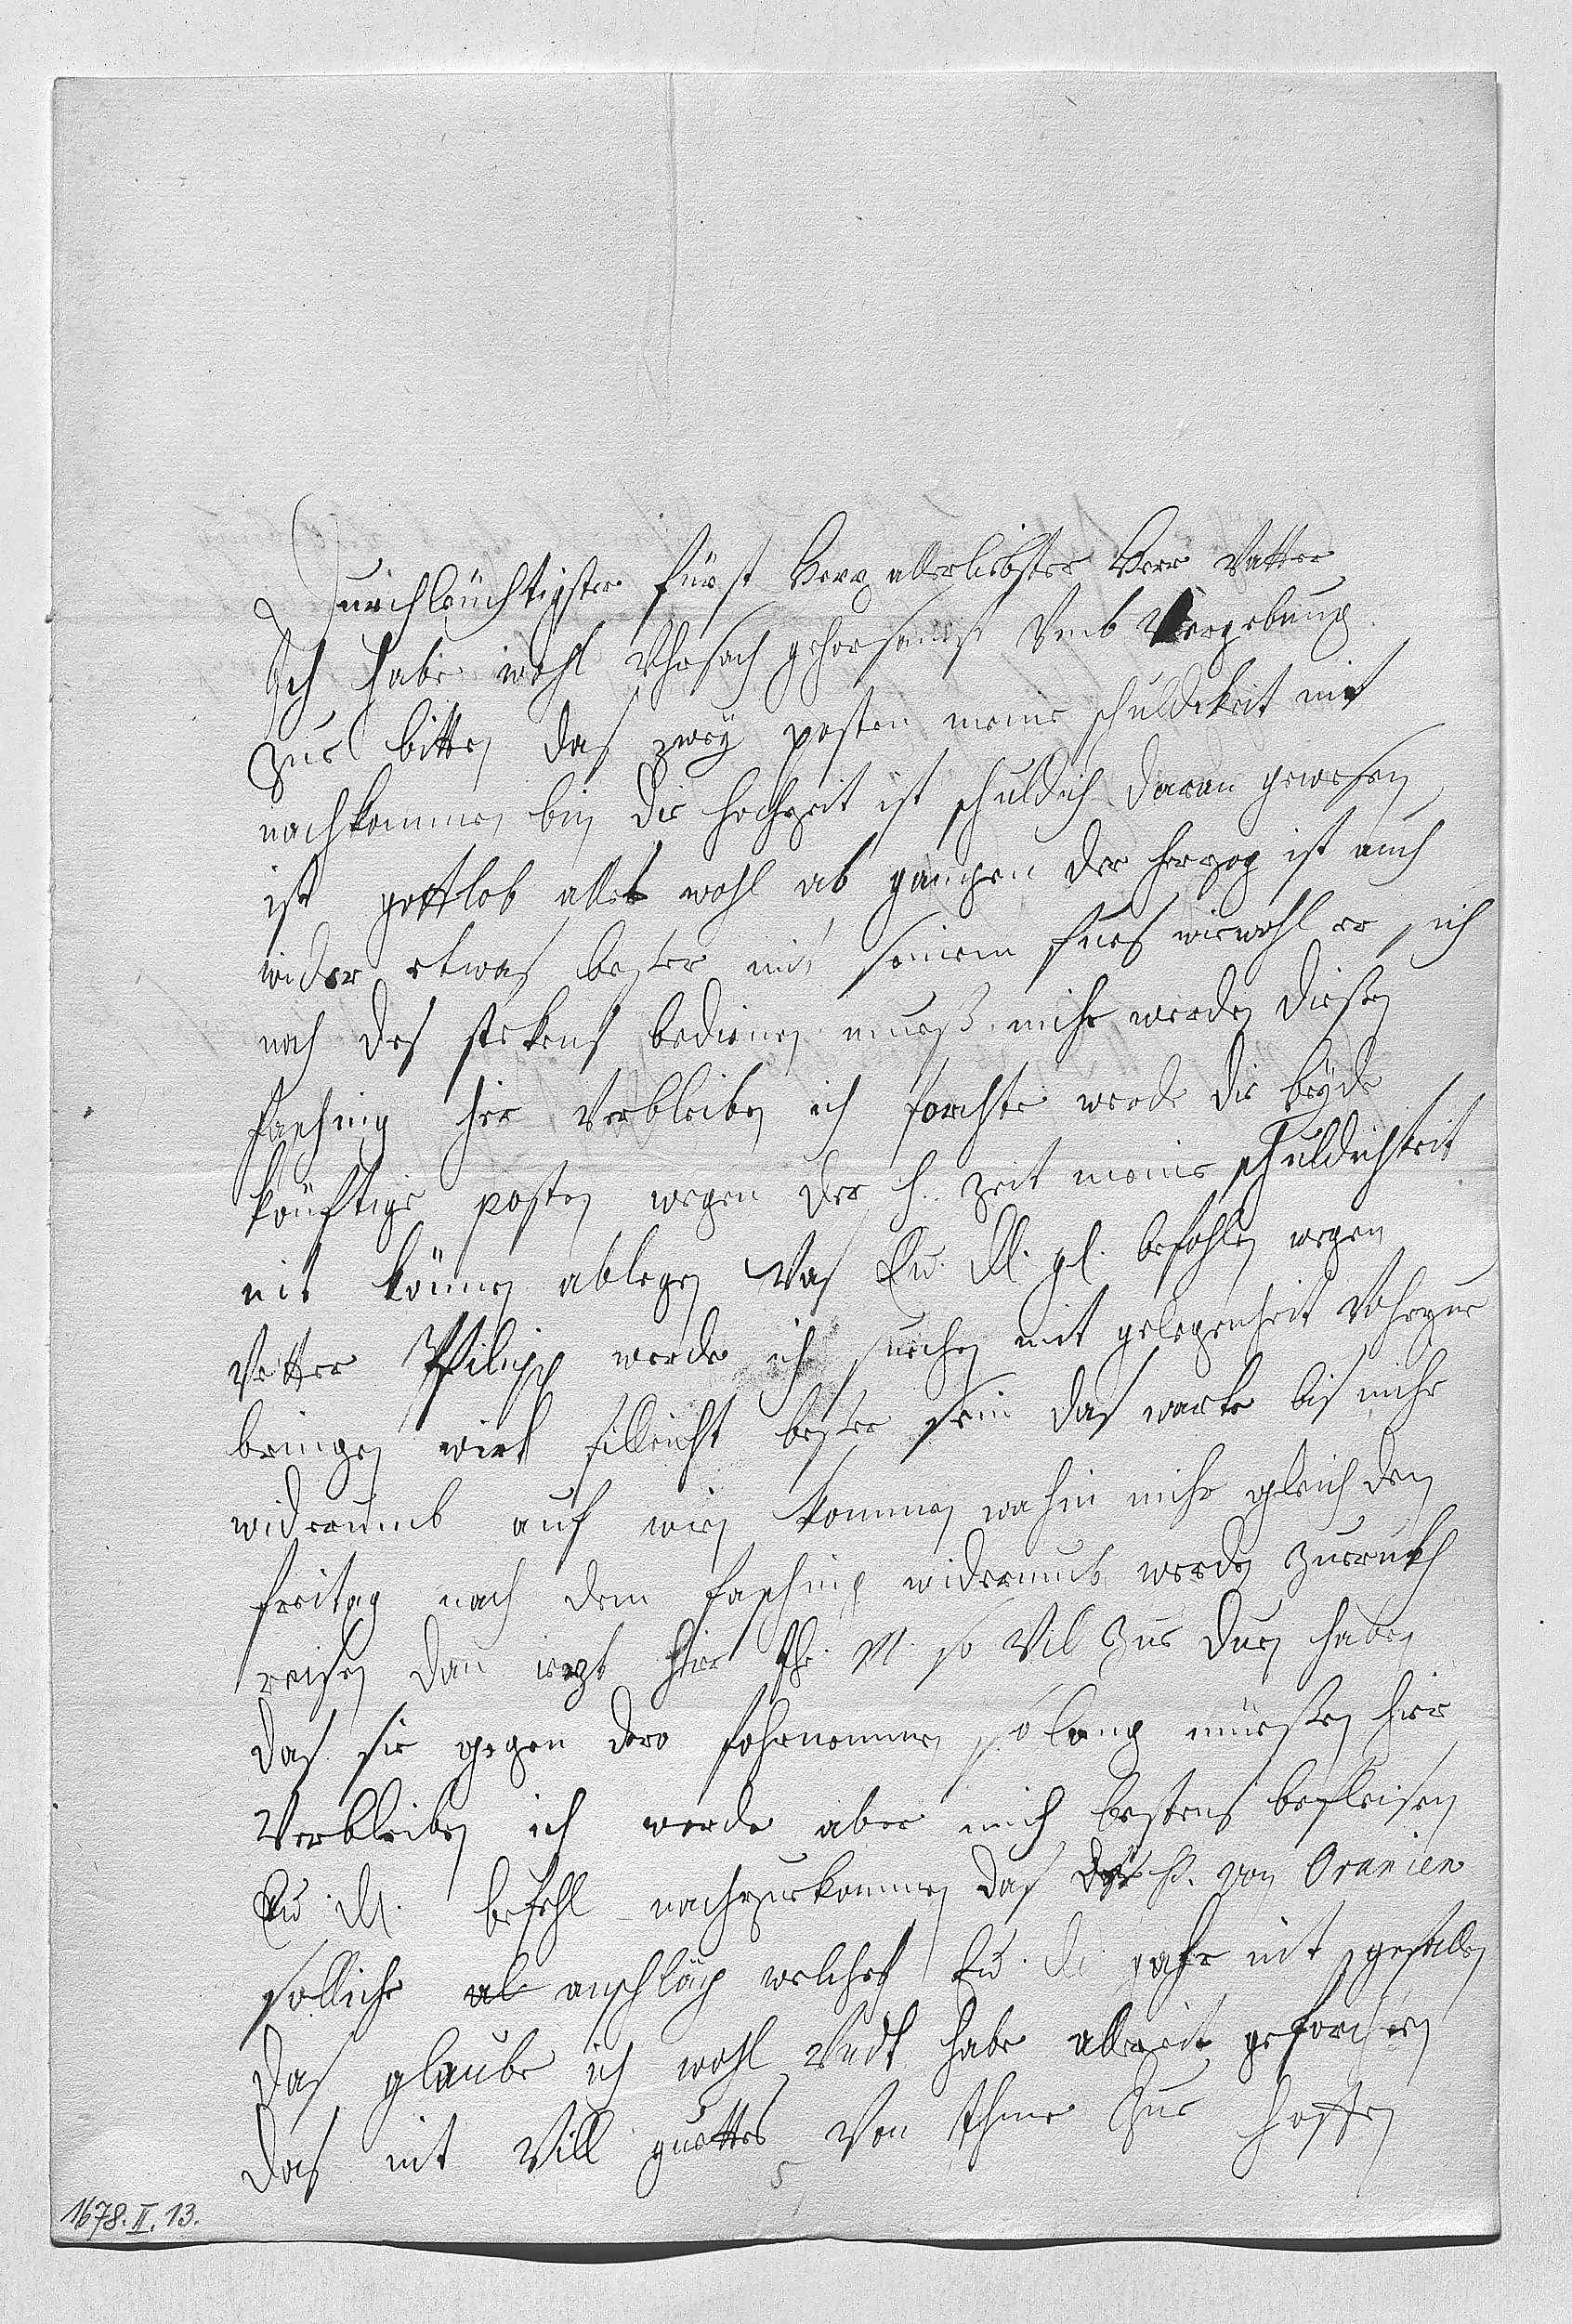 Durchleüchtigster fürst Herr allerliebster Herr Vatter
Ich habe wohl Uhrsach gehorsambst Umb Vergebung
zue bitten das zwey posten meine schuldikeit nit
nachkommen bin die hochzeit ist schuldich daran gewesen
ist gottlob alles wohl ab gangen der herzog ist auch
wider etwas besser mit seinem fues wiewohl er sich
noch des stekens bedienen muess mihr werden diesen
fasching hier verbleiben ich forchte werde die beyde
künftige posten wegen der h. Zeit meine schuldichkeit
nit können ablegen Was Eu. Dl. gl. befohlen wegen
Vetter Philipp werde ich suechen mit gelegenheit Vohrzue
bringen wirt filleicht besser sein das warte bis mihr
widerumb auf wien kommen wohin mihr gleich den
freitag nach dem fasching widerumb werden zuerukh
reisen dan iezt hier Ihr M. so Vil zue duen haben
das sie gegen dero fohrnemmen so lang müessen hier
Verbleiben ich werde aber mich bestens befleisen
Eu. Dl. befehl nachzuekommen das der P. von Oranien
solliche anschläg welches Eu. Dl. gahr nit gefallen
das glaube ich wohl Undt habe allezeit geforchten
das nit Vill guettes Von Ihme Zue hoffen
5
1678. II. 13.